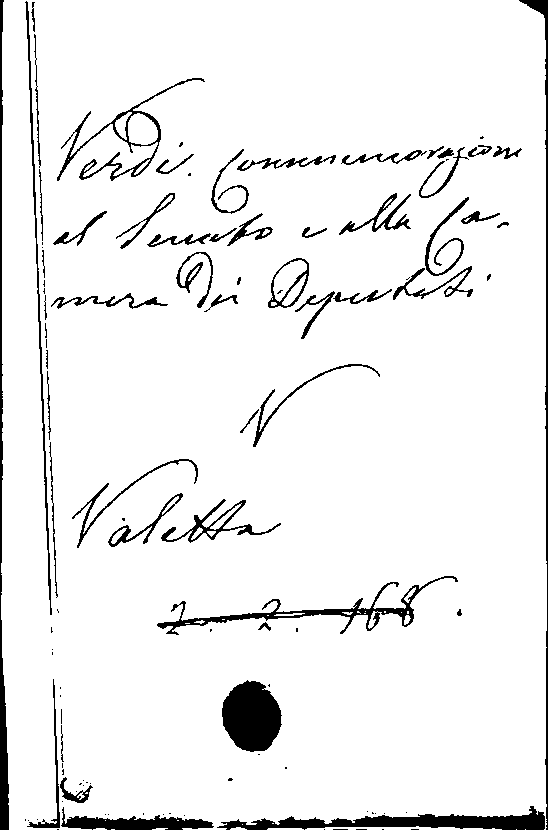 Verdi. Commemorazione
al Senato e alla Ca-
mera dei Deputati
V
Valetta
2. 2. 168.